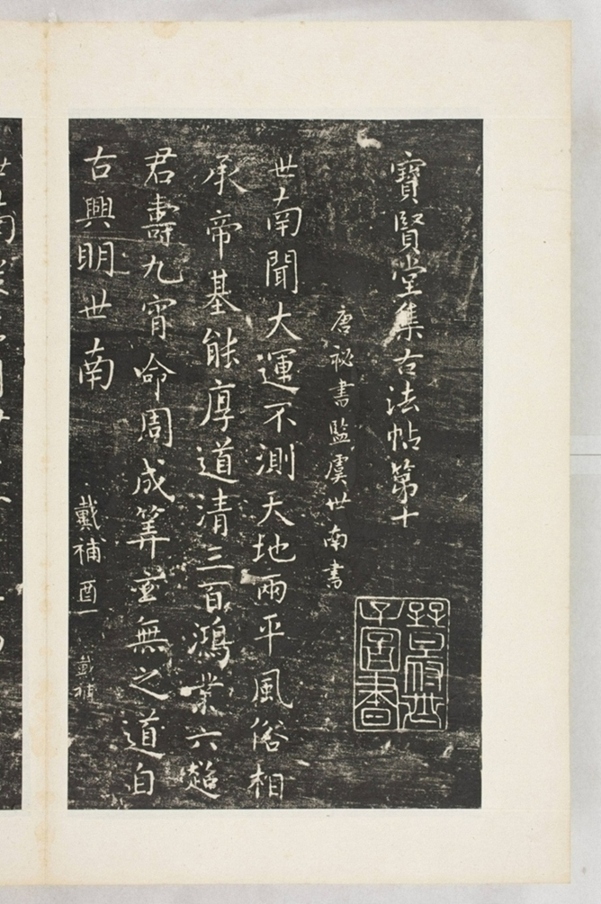 寶賢堂集古法帖第十
唐祕書監虞世南書
世南聞大運不測天地兩平風俗相
承帝基能厚道清三百鴻業六超
君壽九霄命周成筭並無之道自
古興明世南
戴補 酉一
戴補